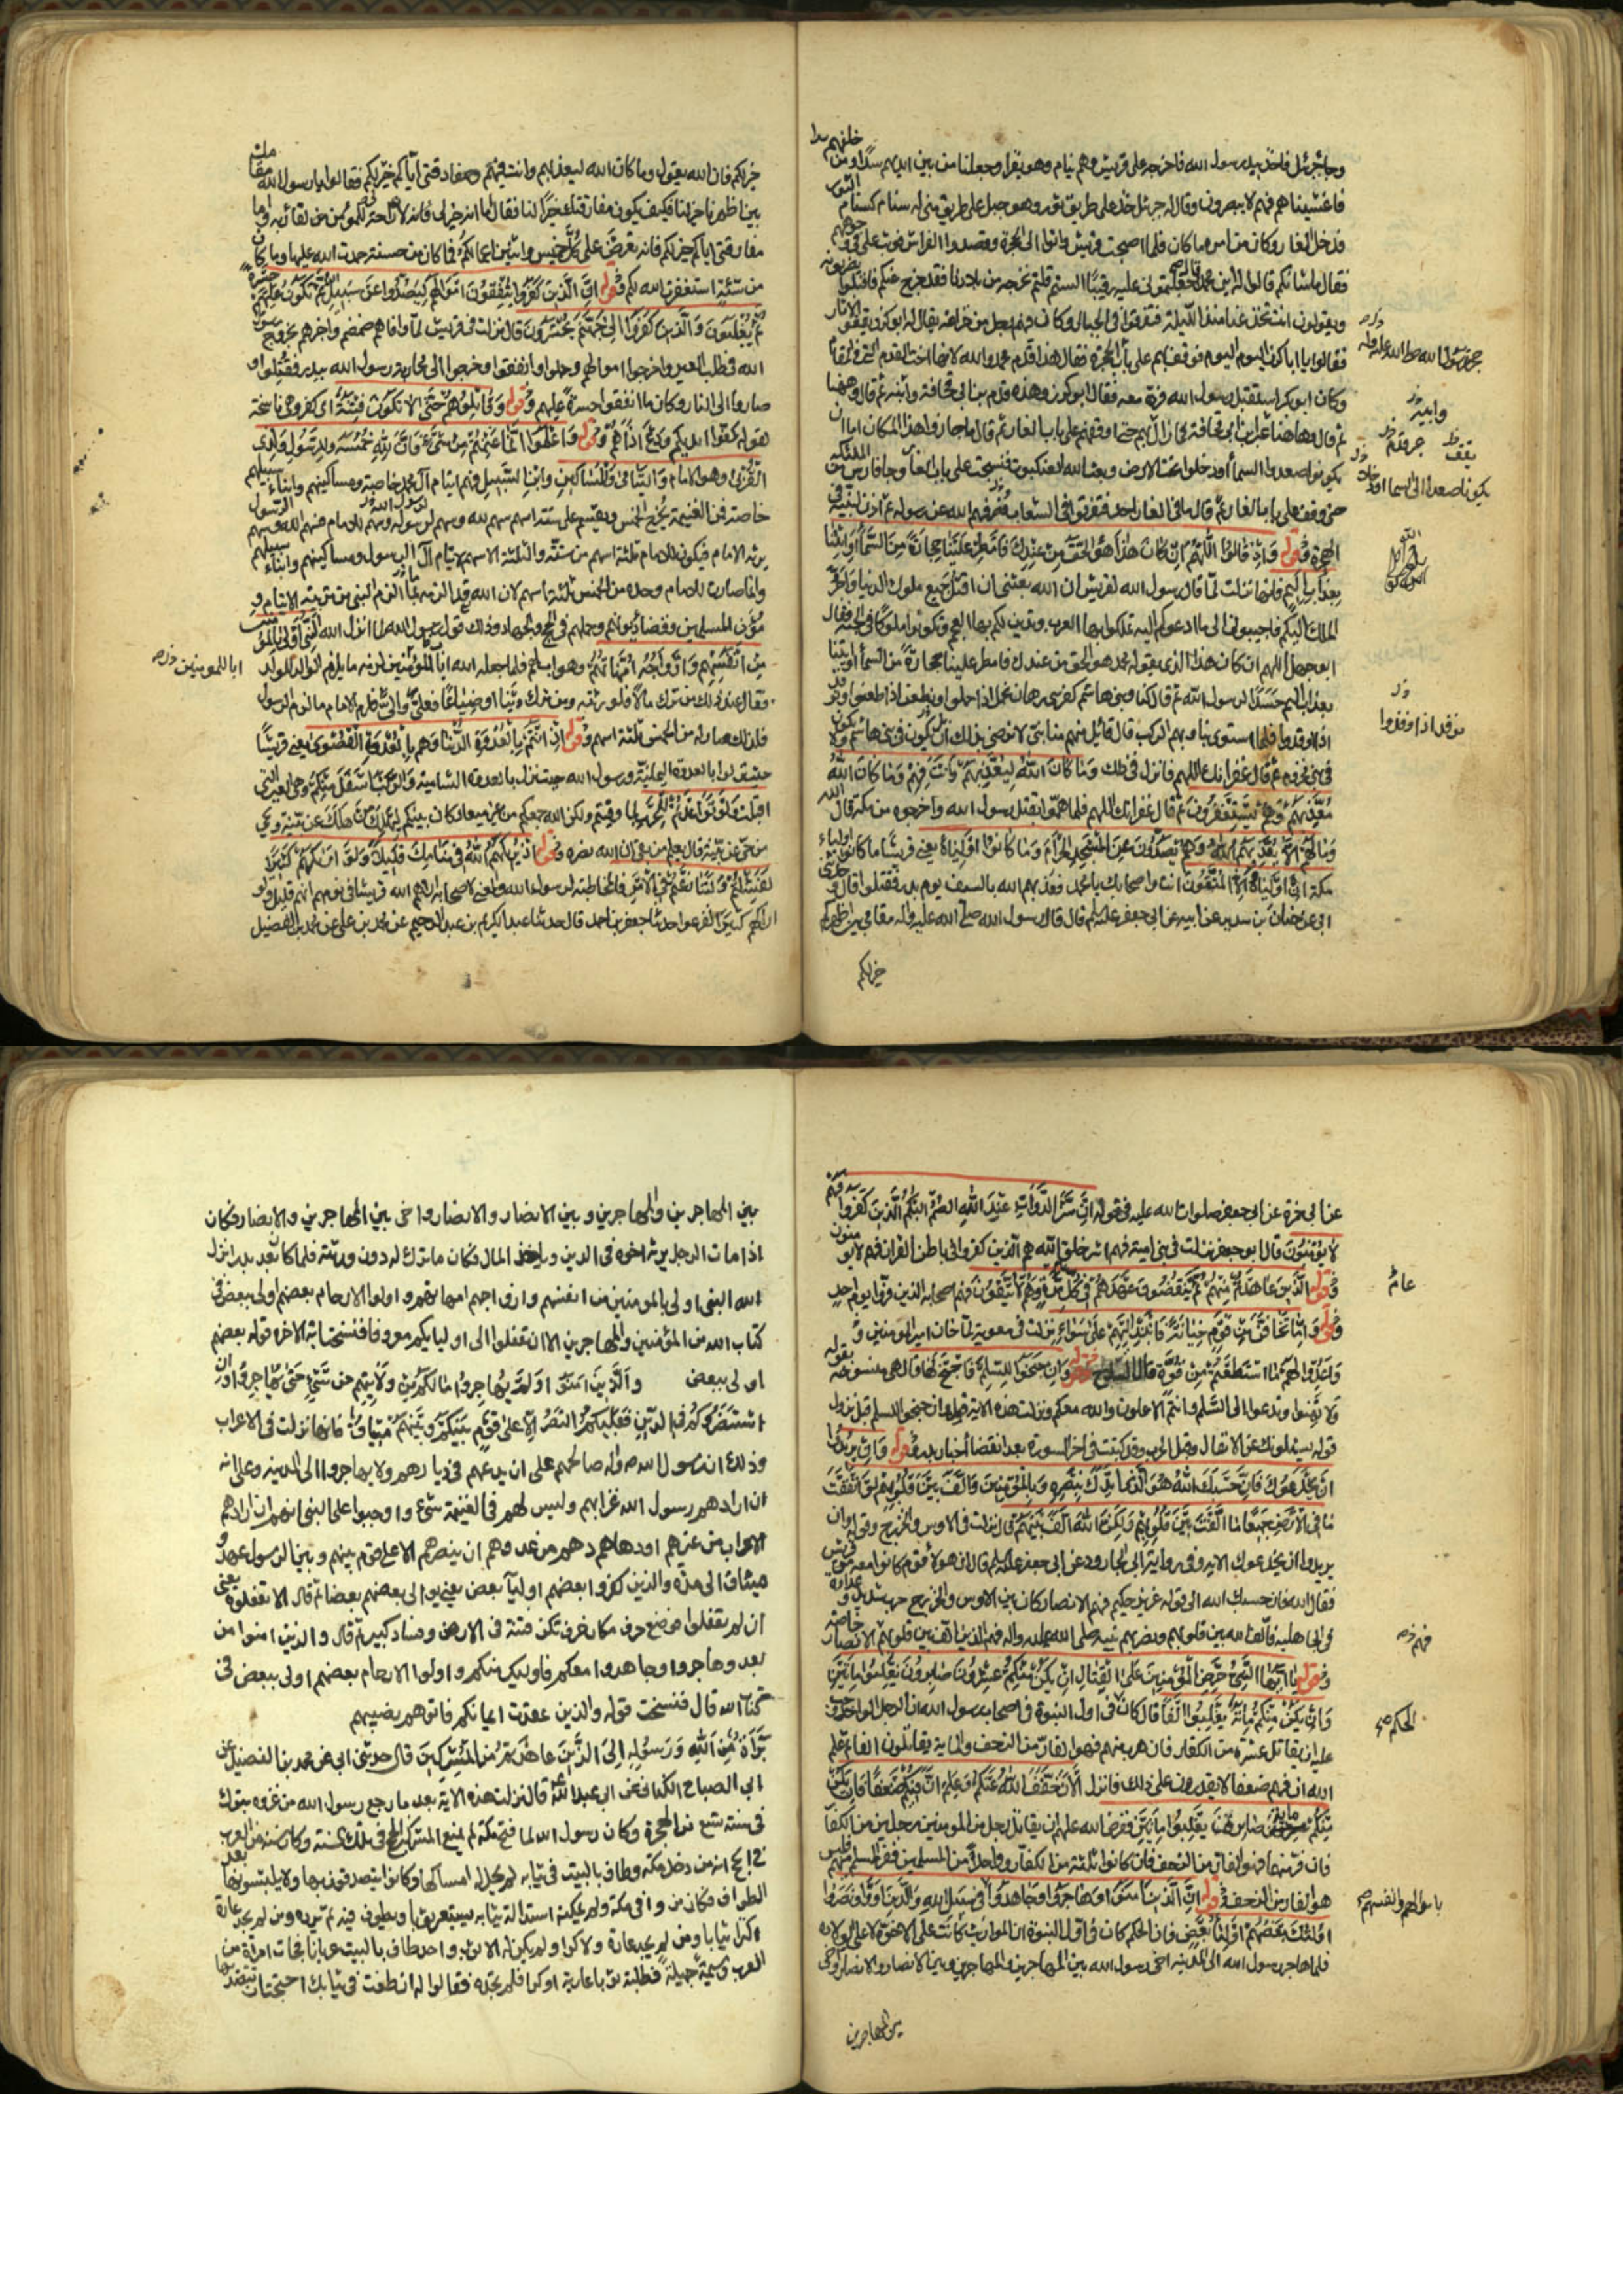 وجا جبرئيل فاخذ بيد رسول الله فاخرجه على قريش وهم نيام وهو يقرا وجعلنا من بين ايديهم سدا ومن خلفهم سدا
فاغشيناهم فهم لا يبصرون وقال له جبرئيل خذ على طريق ثور وهو جبل على طريق منى له سنام كسنام الثور
فدخل الغار وكان من امره ما كان فلما اصبحت قريش واتوا الى الحجرة وقصدوا الفراش فوثب على في وجوههم
فقال ما شانكم قالوا له اين محمد قال جعلتموني عليه رقيبا الستم قلتم نخرجه من بلادنا فقد خرج عنكم فاقبلوا يضربونه
ويقولون انت تخدعنا منذ الليلة فتفرقوا في الجبال وكان فيهم رجل من خزاعة يقال له ابو كرز يقفو الاثار
فقالوا يا ابا كرز اليوم اليوم فوقف بهم على باب الحجرة فقال هذا قدم محمد والله لانها اخت القدم التي في المقام
وكان ابو بكر استقبل رسول الله فرده معه فقال ابو كرز وهذه قدم ابن ابي قحافة وابنه ثم قال وههنا
ثم قال وهاهنا غير ابن ابي قحافة فما زال بهم حتى اوقفهم على باب الغار ثم قال ما جازوا هذا المكان اما ان
يكونوا صعدوا السماء او دخلوا تحت الارض وبعث الله العنكبوت فنسجت على باب الغار وجا فارس من الملئكة
حتى وقف على باب الغار ثم قال ما في الغار احد فتفرقوا في الشعاب فصرفهم الله عن رسوله ثم اذن لنبيه في
الهجرة وقوله وَاِذْ قَالُوا اللّٰهُمَّ اِنْ كَانَ هٰذَا هُوَ الْحَقَّ مِنْ عِنْدِكَ فَاَمْطِرْ عَلَيْنَا حِجَارَةً مِنَ السَّمَاءِ اَوِ ائْتِنَا
بِعَذَابٍ اَلِيمٍ فانها نزلت لما قال رسول الله لقريش ان الله بعثني ان اقتل جميع ملوك الدنيا واجر
الملك اليكم فاجيبوني الى ما ادعوكم اليه تملكوا بها العرب وتدين لكم بها العجم وتكونوا ملوكا في الجنة فقال
ابو جهل اللهم ان كان هذا الذي يقوله محمد هو الحق من عندك فامطر علينا حجارة من السماء او ائتنا
بعذاب اليم حسدا لرسول الله ثم قال كنا وبني هاشم كفرسي رهان نحمل اذا حملوا ونطعن اذا طعنوا ونوقد
اذا اوقدوا فلما استوى بنا وبهم الركب قال قائل منهم منا نبي لا نرضى بذلك ان يكون في بني هاشم ولا يكون
في بني مخزوم ثم قال غفرانك اللهم فانزل في ذلك وَمَا كَانَ اللّٰهُ لِيُعَذِّبَهُمْ وَاَنْتَ فِيهِمْ وَمَا كَانَ اللّٰهُ
مُعَذِّبَهُمْ وَهُمْ يَسْتَغْفِرُونَ ثم قال غفرانك اللهم فلما هموا بقتل رسول الله واخرجوه من مكة قال الله
وَمَا لَهُمْ اَلَّا يُعَذِّبَهُمُ اللّٰهُ وَهُمْ يَصُدُّونَ عَنِ الْمَسْجِدِ الْحَرَامِ وَمَا كَانُوا اَوْلِيَاءَهُ يعني قريشا ما كانوا اولياء
مكة اِنْ اَوْلِيَاؤُهُ اِلَّا الْمُتَّقُونَ انت واصحابك يا محمد فعذبهم الله بالسيف يوم بدر فقتلوا قال وحدثني
ابي عن حنان بن سدير عن ابيه عن ابي جعفر عليه السلم قال قال رسول الله صلى الله عليه واله مقامي بين اظهركم
خير لكم
جر رسول الله صلى الله عليه واله
وابيه
يقف
يكونوا صعدا الى السما او دخلا
نوقد اذا اوقدوا
خير لكم فان الله يقول وما كان الله ليعذبهم وانت فيهم ومفارقتي اياكم خير لكم فقالوا يا رسول الله مقامك
بين اظهرنا خير لنا فكيف يكون مفارقتك خيرا لنا فقال اما
مفارقتي اياكم خير لكم فانه تعرض على كل خميس واثنين اعمالكم فما كان من حسنة حمدت الله عليها وما كان
من سيئة استغفرت الله لكم وقوله اِنَّ الَّذِينَ كَفَرُوا يُنْفِقُونَ اَمْوَالَهُمْ لِيَصُدُّوا عَنْ سَبِيلِ اللّٰهِ ثُمَّ تَكُونُ عَلَيْهِمْ حَسْرَةً
ثُمَّ يُغْلَبُونَ وَالَّذِينَ كَفَرُوا اِلٰى جَهَنَّمَ يُحْشَرُونَ قال نزلت في قريش لما وافاهم ضمضم واخبرهم بخروج رسول
الله في طلب العير فاخرجوا اموالهم وحملوا وانفقوا وخرجوا الى محاربة رسول الله ببدر فقتلوا و
صاروا الى النار وكان ما انفقوا حسرة عليهم وقوله وَقَاتِلُوهُمْ حَتّٰى لَا تَكُونَ فِتْنَةٌ اى كفر وهي ناسخة
لقوله كفوا ايديكم ودع اذاهم وقوله وَاعْلَمُوا اَنَّمَا غَنِمْتُمْ مِنْ شَيْءٍ فَاَنَّ لِلّٰهِ خُمُسَهُ وَلِلرَّسُولِ وَلِذِي
الْقُرْبٰى وهو الامام وَالْيَتَامٰى وَالْمَسَاكِينِ وَابْنِ السَّبِيلِ فهم ايتام آل محمد خاصة ومساكينهم وابناء سبيلهم
خاصة فمن الغنيمة يخرج الخمس ويقسم على ستة اسهم سهم لله وسهم لرسول الله وسهم للامام فسهم الله وسهم الرسول
يرثه الامام فيكون للامام ثلثة اسهم من ستة والثلثة الاسهم لايتام آل الرسول ومساكينهم وابناء سبيلهم
وانما صارت للامام وحده من الخمس ثلثة اسهم لان الله قد الزمه بما الزم النبي من تربية الايتام و
مؤن المسلمين وقضاء ديونهم وحملهم في الحج والجهاد وذلك قول رسول الله لما انزل الله اَلنَّبِيُّ اَوْلٰى بِالْمُؤْمِنِينَ
مِنْ اَنْفُسِهِمْ وَاَزْوَاجُهُ اُمَّهَاتُهُمْ وهو اب لهم فلما جعله الله ابا للمؤمنين لزمه ما يلزم الوالد للولد
فقال عند ذلك من ترك مالا فلورثته ومن ترك دينا او ضياعا فعلى والى فلزم الامام ما لزم الرسول
فلذلك صار له من الخمس ثلثة اسهم وقوله اِذْ اَنْتُمْ بِالْعُدْوَةِ الدُّنْيَا وَهُمْ بِالْعُدْوَةِ الْقُصْوٰى يعني قريشا
حيث نزلوا بالعدوة اليمانية ورسول الله حيث نزل بالعدوة الشامية وَالرَّكْبُ اَسْفَلَ مِنْكُمْ وهي العير التي
افلتت وَلَوْ تَوَاعَدْتُمْ للحرب لما وفيتم ولكن الله جمعكم من غير ميعاد كان بينكم لِيَهْلِكَ مَنْ هَلَكَ عَنْ بَيِّنَةٍ وَيَحْيٰى
مَنْ حَيَّ عَنْ بَيِّنَةٍ قال يعلم من بقي ان الله نصره وقوله اِذْ يُرِيكَهُمُ اللّٰهُ فِي مَنَامِكَ قَلِيلًا وَلَوْ اَرَاكَهُمْ كَثِيرًا
لَفَشِلْتُمْ وَلَتَنَازَعْتُمْ فِي الْاَمْرِ فالمخاطبة لرسول الله والمعنى لاصحابه اراهم الله قريشا في نومهم انهم قليل ولو
اراكهم كثيرا لفزعوا حدثنا جعفر بن احمد قال حدثنا عبد الكريم بن عبد الرحيم عن محمد بن علي عن محمد بن الفضيل
ابا للمومنين
عن ابي حمزة عن ابي جعفر صلوات الله عليه في قوله اِنَّ شَرَّ الدَّوَابِّ عِنْدَ اللّٰهِ الصُّمُّ الْبُكْمُ الَّذِينَ كَفَرُوا فَهُمْ
لَا يُؤْمِنُونَ قال ابو جعفر نزلت في بني امية فهم اشر خلق الله هم الذين كفروا في باطن القران فهم لا يومنون
وقوله الَّذِينَ عَاهَدْتَ مِنْهُمْ ثُمَّ يَنْقُضُونَ عَهْدَهُمْ فِي كُلِّ مَرَّةٍ وَهُمْ لَا يَتَّقُونَ فهم اصحابه الذين فروا يوم احد
وقوله وَاِمَّا تَخَافَنَّ مِنْ قَوْمٍ خِيَانَةً فَانْبِذْ اِلَيْهِمْ عَلٰى سَوَاءٍ نزلت في معوية لما خان امير المومنين و
وَاَعِدُّوا لَهُمْ مَا اسْتَطَعْتُمْ مِنْ قُوَّةٍ قال السلاح وقوله وَاِنْ جَنَحُوا لِلسَّلْمِ فَاجْنَحْ لَهَا قال هي منسوخة بقوله
وَلَا تَهِنُوا وتدعوا الى السلم وانتم الاعلون والله معكم ونزلت هذه الاية قوله وان جنحوا للسلم قبل نزول
قوله يسئلونك عن الانفال وقبل الحرب وقد كتبت في اخر السورة بعد انقضا اخبار بدر وقوله وَاِنْ يُرِيدُوا
اَنْ يَخْدَعُوكَ فَاِنَّ حَسْبَكَ اللّٰهُ هُوَ الَّذِي اَيَّدَكَ بِنَصْرِهِ وَبِالْمُؤْمِنِينَ وَاَلَّفَ بَيْنَ قُلُوبِهِمْ لَوْ اَنْفَقْتَ
مَا فِي الْاَرْضِ جَمِيعًا مَا اَلَّفْتَ بَيْنَ قُلُوبِهِمْ وَلٰكِنَّ اللّٰهَ اَلَّفَ بَيْنَهُمْ نزلت في الاوس والخزرج وقوله وان
يريدوا ان يخدعوك الاية وفي رواية ابي الجارود عن ابي جعفر عليه السلم قال ان هولا قوم كانوا معه من قريش
فقال الله فان حسبك الله الى قوله عزيز حكيم فهم الانصار كان بين الاوس والخزرج حرب شديد وعداوة
في الجاهلية فالف الله بين قلوبهم ونصر بهم نبيه صلى الله عليه واله فهم الذين الف بين قلوبهم الانصار خاصة
وقوله يَا اَيُّهَا النَّبِيُّ حَرِّضِ الْمُؤْمِنِينَ عَلَى الْقِتَالِ اِنْ يَكُنْ مِنْكُمْ عِشْرُونَ صَابِرُونَ يَغْلِبُوا مِائَتَيْنِ
وَاِنْ يَكُنْ مِنْكُمْ مِائَةٌ يَغْلِبُوا اَلْفًا قال كان في اول النبوة في اصحاب رسول الله ان الرجل الواحد وجب
عليه ان يقاتل عشرة من الكفار فان هرب منهم فهو الفار من الزحف والماية يقاتلون الفا ثم علم
الله ان فيهم ضعفا لا يقدرون على ذلك فانزل اَلْاٰنَ خَفَّفَ اللّٰهُ عَنْكُمْ وَعَلِمَ اَنَّ فِيكُمْ ضَعْفًا فَاِنْ يَكُنْ
مِنْكُمْ مائة صَابِرَةٌ يَغْلِبُوا مِائَتَيْنِ ففرض الله عليهم ان يقاتل رجل من المومنين رجلين من الكفار
فان فر منهما فهو الفار من الزحف فان كانوا ثلثة من الكفار وواحدا من المسلمين ففر المسلم منهم فليس
هو الفار من الزحف وقوله اِنَّ الَّذِينَ اٰمَنُوا وَهَاجَرُوا وَجَاهَدُوا فِي سَبِيلِ اللّٰهِ وَالَّذِينَ اٰوَوْا وَنَصَرُوا
اُولٰئِكَ بَعْضُهُمْ اَوْلِيَاءُ بَعْضٍ فان الحكم كان في اول النبوة ان المواريث كانت على الاخوة لا على الولادة
فلما هاجر رسول الله الى المدينة اخى رسول الله بين المهاجرين والمهاجرين وبين الانصار والانصار واخى
بين المهاجرين
فهم
الحكم
باموالهم وانفسهم
بين المهاجرين والمهاجرين وبين الانصار والانصار واخى بين المهاجرين والانصار فكان
اذا مات الرجل يرثه اخوه في الدين وياخذ المال فكان ما ترك له دون ورثته فلما كان بعد بدر انزل
الله النبى اولى بالمومنين من انفسهم وازواجهم امهاتهم واولوا الارحام بعضهم اولى ببعض في
كتاب الله من المؤمنين والمهاجرين الا ان تفعلوا الى اوليايكم معروفا فنسخت اية الاخوة قوله بعضهم
اولى ببعض والَّذِينَ اٰمَنُوا وَلَمْ يُهَاجِرُوا مَالَكُمْ مِنْ وَلَايَتِهِمْ مِنْ شَيْءٍ حَتّٰى يُهَاجِرُوا وَاِنِ
اسْتَنْصَرُوكُمْ فِي الدِّينِ فَعَلَيْكُمُ النَّصْرُ اِلَّا عَلٰى قَوْمٍ بَيْنَكُمْ وَبَيْنَهُمْ مِيثَاقٌ فانها نزلت في الاعراب
وذلك ان رسول الله صالحهم على ان يدعهم في ديارهم ولا يهاجروا الى المدينة وعلى انه
ان ارادهم رسول الله غزا بهم وليس لهم في الغنيمة شيء واوجبوا على النبى انهم ان ارادهم
الاعراب من غيرهم او دهاهم دهم من عدوهم ان ينصرهم الا على قوم بينهم وبين الرسول عهد و
ميثاق الى مدة والذين كفروا بعضهم اوليآ بعض يعني يوالى بعضهم بعضا ثم قال الا تفعلوه يعنى
ان لم تفعلوا فوضع حرف مكان حرف تكن فتنة في الارض وفساد كبير ثم قال والذين امنوا من
بعد وهاجروا وجاهدوا معكم فاوليك منكم واولوا الارحام بعضهم اولى ببعض في
كتاب الله قال فنسخت قوله والذين عقدت ايمانكم فاتوهم نصيبهم
بَرَاءَةٌ مِنَ اللّٰهِ وَرَسُولِهِ اِلَى الَّذِينَ عَاهَدْتُمْ مِنَ الْمُشْرِكِينَ قال حدثنى ابى عن محمد بن الفضيل عن
ابى الصباح الكنانى عن ابى عبد الله قال نزلت هذه الاية بعد ما رجع رسول الله من غزوه تبوك
في سنة تسع من الهجرة وكان رسول الله لما فتح مكة لم يمنع المشركين الحج في تلك السنة وكان سنة من العرب
في الحج انه من دخل مكة وطاف بالبيت في ثيابه لم يحل له امساكها وكانوا يتصدقون بها ولا يلبسونها بعد
الطواف فكان من وافى مكة يستعير ثوبا ويطوف فيه ثم يرده ومن لم يجد عارية
اكترى ثيابا ومن لم يجد عارية ولا كرا ولم يكن له الا ثوب واحد طاف بالبيت عريانا فجات امراة من
العرب وسيمة جميلة فطلبت ثوبا عارية او كرا فلم تجده فقالوا لها ان طفت في ثيابك احتجت ان تتصدقى بها